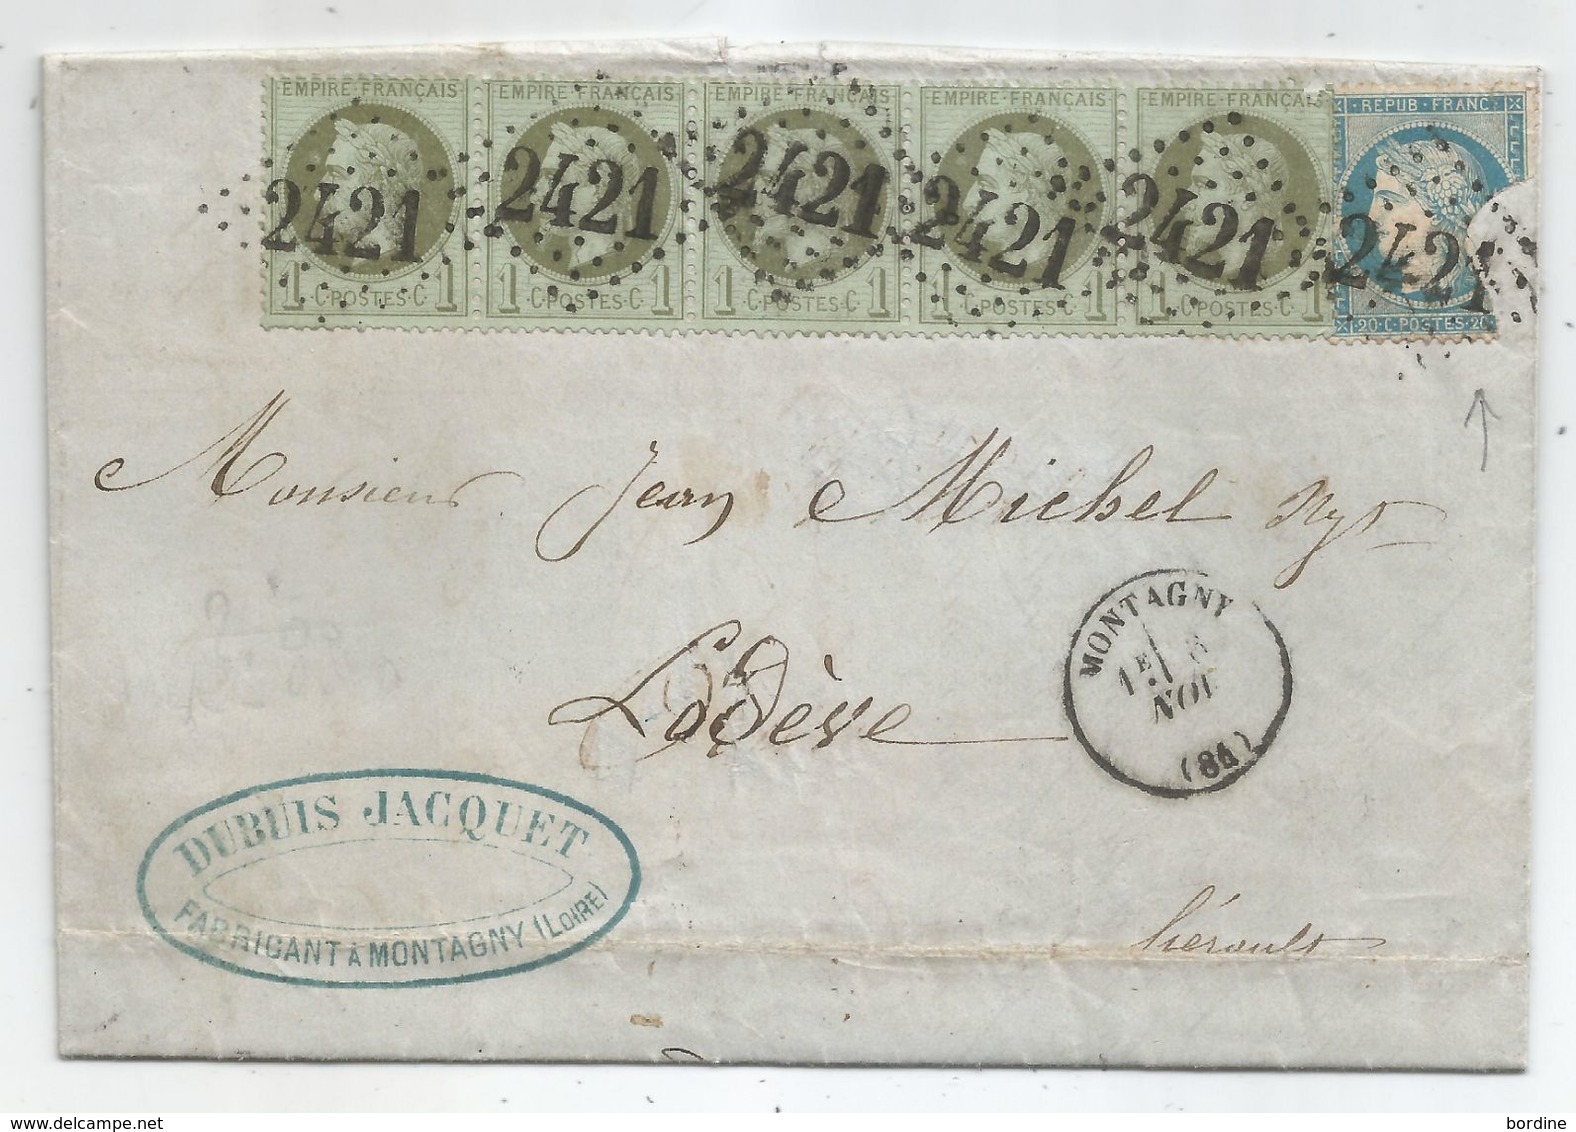 EMPIRE·FRANÇAIS EMPIRE·FRANÇAIS EMPIRE·FRANÇAIS EMPIRE·FRANÇAIS EMPIRE·FRANÇAIS REPUB·FRANC
2421 2421 2421 2421 2421 2421
1 C·POSTES·C 1 1 C·POSTES·C 1 1 C·POSTES·C 1 1 C·POSTES·C 1 1 C·POSTES·C 20·C·POSTES·20
Monsieur Jean Michel
MONTAGNY
1E 8
NOV
(84)
Lodève
DUBUIS JACQUET
FABRICANT À MONTAGNY (LOIRE)
hérault
delcampe.net
bordine